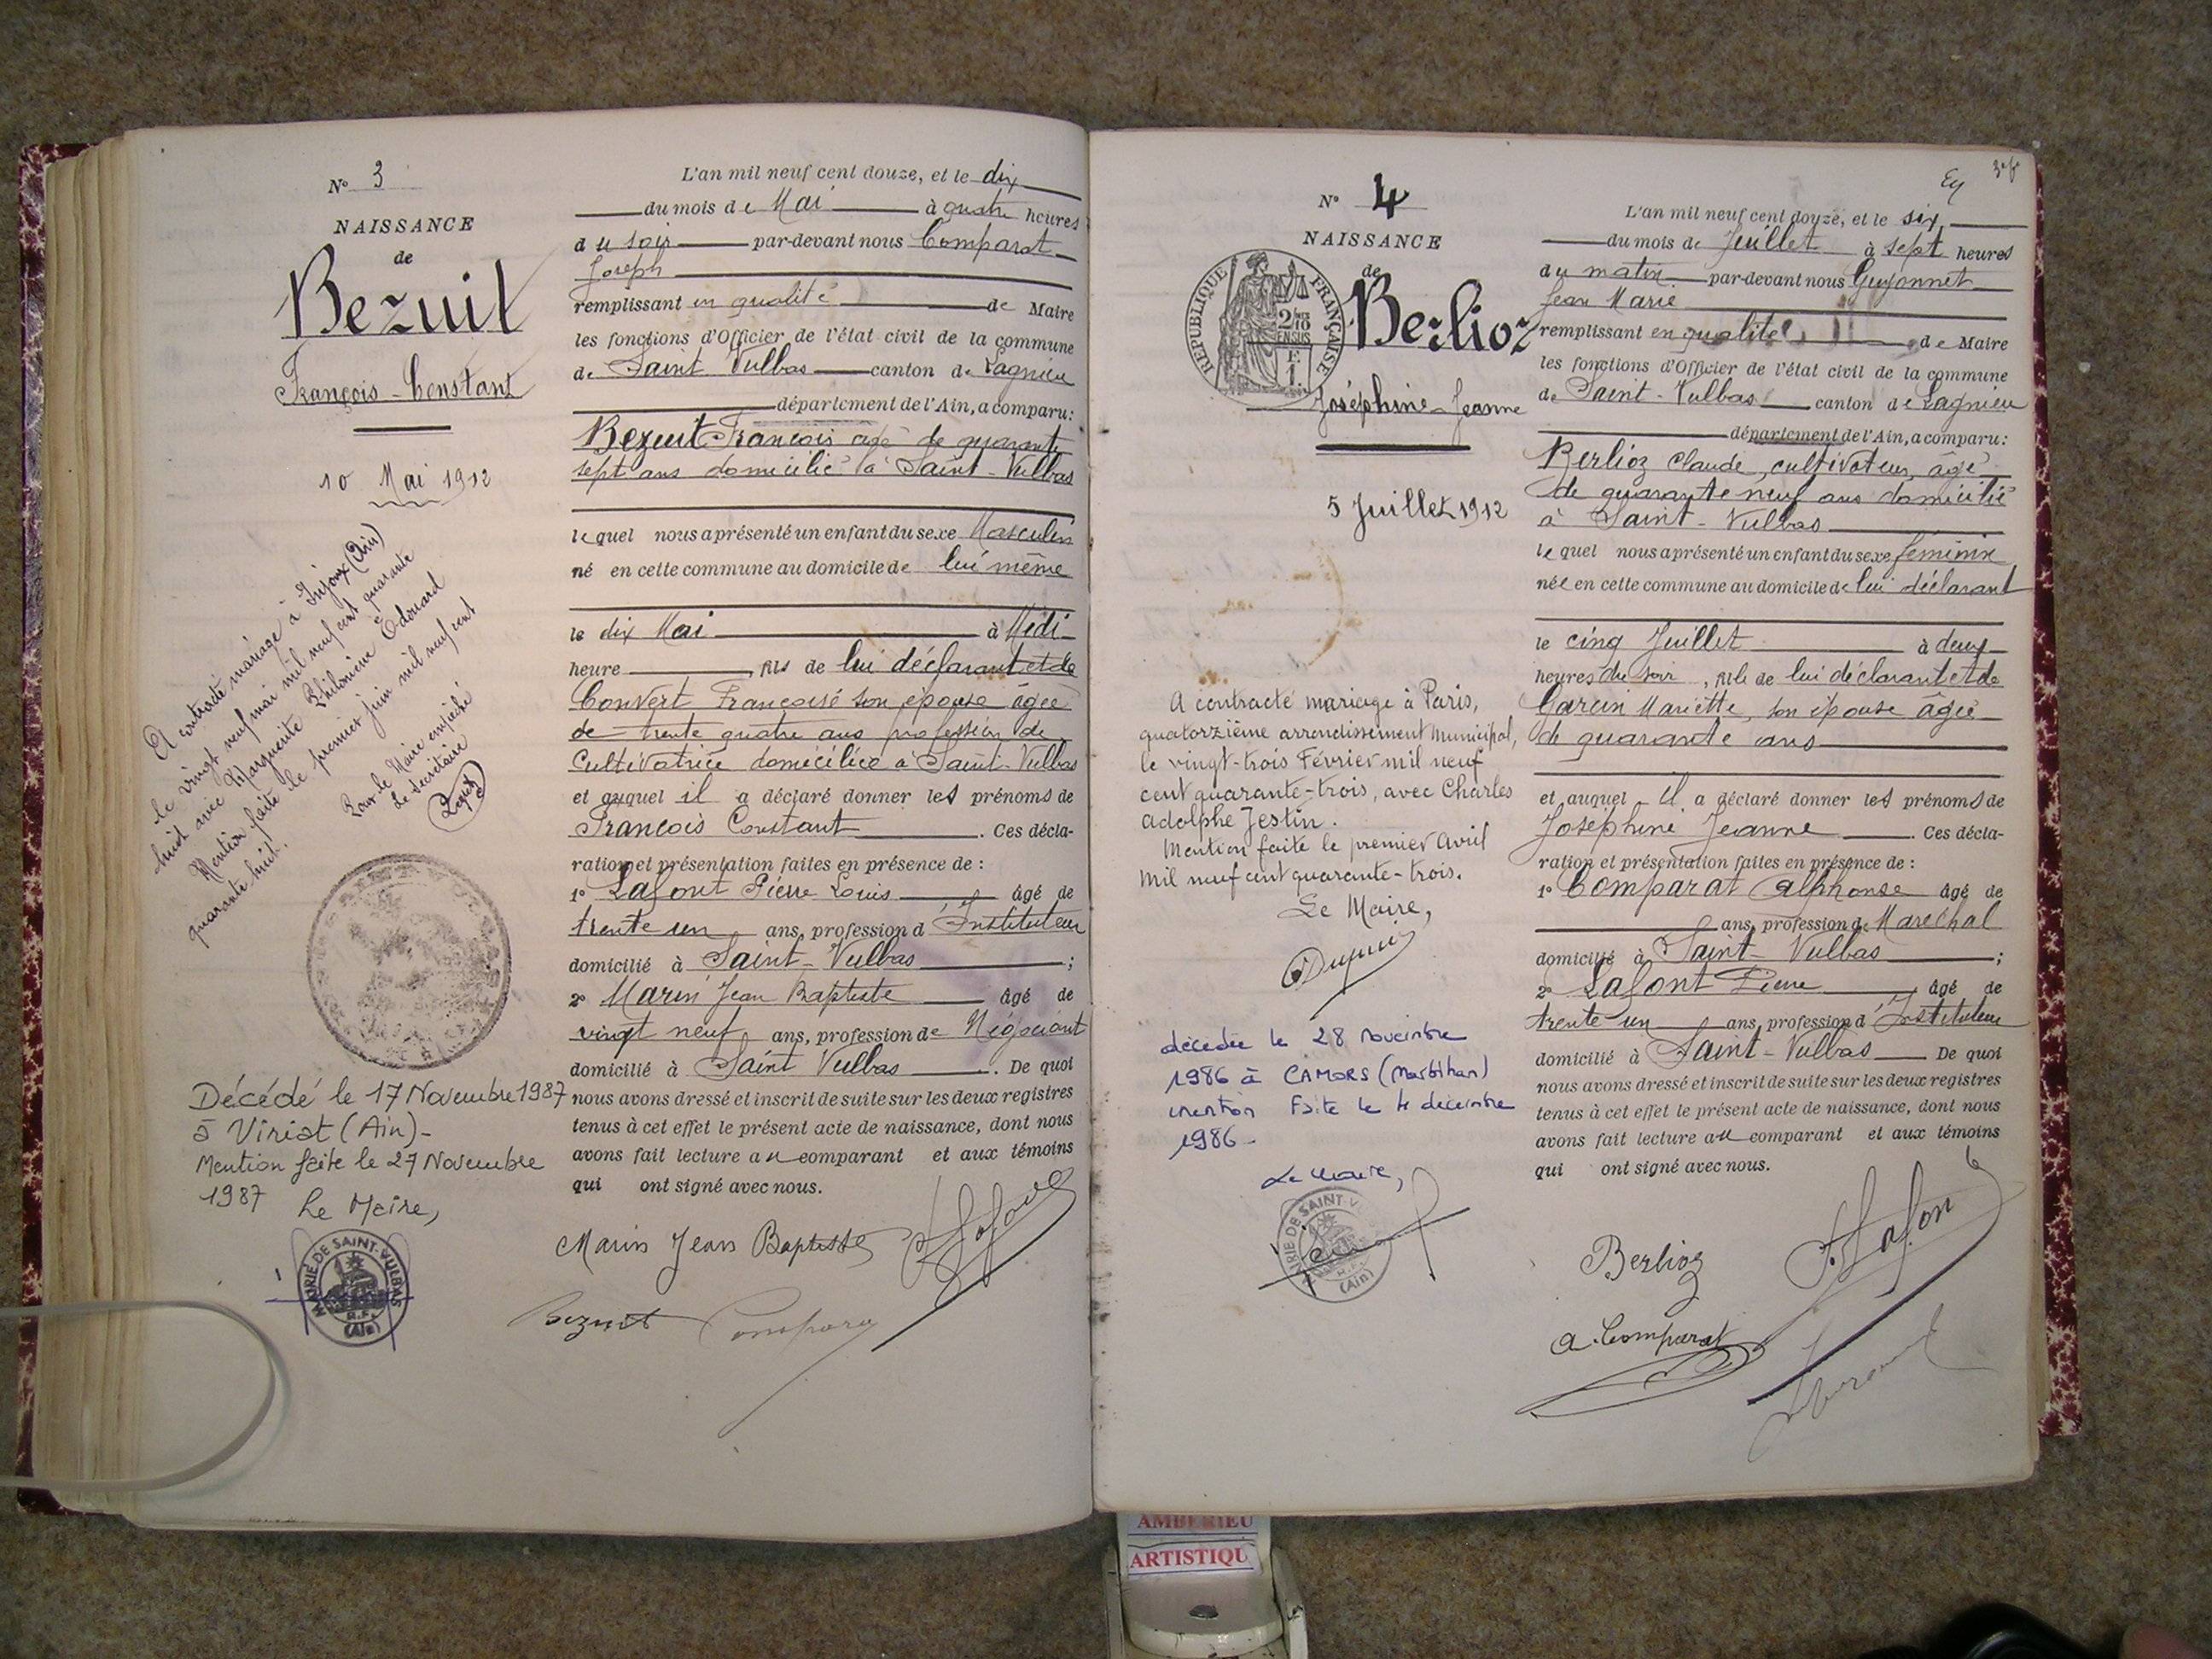 N° 3
NAISSANCE
de
Bezuit
François-Constant
10 Mai 1912
A contracté mariage à Injoux (Ain)
le vingt neuf mai mil neuf cent quarante
huit avec Marguerite Philomène Edouard
Mention faite le premier juin mil neuf cent
quarante huit.
Pour le Maire empêché
Le Secrétaire
Décédé le 17 Novembre 1987
à Viriat (Ain)-
Mention faite le 27 Novembre
1987
Le Maire,
MAIRIE DE SAINT-VULBAS
R.F.
(Ain)
L'an mil neuf cent douze, et le dix
du mois de Mai à quatre heures
du soir par-devant nous Comparat
Joseph
remplissant en qualité de Maire
les fonctions d'Officier de l'état civil de la commune
de Saint Vulbas canton de Lagnieu
département de l'Ain, a comparu:
Bezuit François agé de quarante
sept ans domicilié à Saint-Vulbas
lequel nous a présenté un enfant du sexe Masculin
né en cette commune au domicile de lui même
le dix Mai à Midi
heure, fils de lui déclarant et de
Convert Françoise son épouse âgée
de trente quatre ans profession de
Cultivatrice domiciliée à Saint-Vulbas
et auquel il a déclaré donner les prénoms de
François Constant. Ces décla-
ration et présentation faites en présence de :
1° Lafont Pierre Louis âgé de
trente un ans, profession d'Instituteur
domicilié à Saint-Vulbas ;
2° Marin Jean Baptiste âgé de
vingt neuf ans, profession de Négociant
domicilié à Saint Vulbas. De quoi
nous avons dressé et inscrit de suite sur les deux registres
tenus à cet effet le présent acte de naissance, dont nous
avons fait lecture au comparant et aux témoins
qui ont signé avec nous.
Marin Jean Baptiste
Lafont
Bezuit Comparat
N° 4
NAISSANCE
de
Berlioz
Joséphine-Jeanne
REPUBLIQUE FRANÇAISE
2/10
EN SUS
5 Juillet 1912
A contracté mariage à Paris,
quatorzième arrondissement municipal,
le vingt-trois Février mil neuf
cent quarante-trois, avec Charles
Adolphe Jestin.
Mention faite le premier Avril
mil neuf cent quarante-trois.
Le Maire,
Dupuis
décédée le 28 novembre
1986 à CAMORS (Morbihan)
mention faite le 4 décembre
1986-
Le Maire,
MAIRIE DE SAINT-V
(Ain)
L'an mil neuf cent douze, et le six
du mois de Juillet à sept heures
du matin par-devant nous Guyonnet
Jean Marie
remplissant en qualité de Maire
les fonctions d'Officier de l'état civil de la commune
de Saint-Vulbas canton de Lagnieu
département de l'Ain, a comparu:
Berlioz Claude, cultivateur, âgé
de quarante neuf ans domicilié
à Saint-Vulbas
lequel nous a présenté un enfant du sexe féminin
née en cette commune au domicile de lui déclarant
le cinq Juillet à deux
heures du soir, fille de lui déclarant et de
Garcin Mariette, son épouse âgée
de quarante ans
et auquel il a déclaré donner les prénoms de
Joséphine Jeanne. Ces décla-
ration et présentation faites en présence de :
1° Comparat Alphonse âgé de
ans, profession de Maréchal
domicilié à Saint-Vulbas ;
2° Lafont Pierre âgé de
trente un ans, profession d'Instituteur
domicilié à Saint-Vulbas De quoi
nous avons dressé et inscrit de suite sur les deux registres
tenus à cet effet le présent acte de naissance, dont nous
avons fait lecture au comparant et aux témoins
qui ont signé avec nous.
Berlioz Lafont
A. Comparat
AMBERIEU
ARTISTIQU